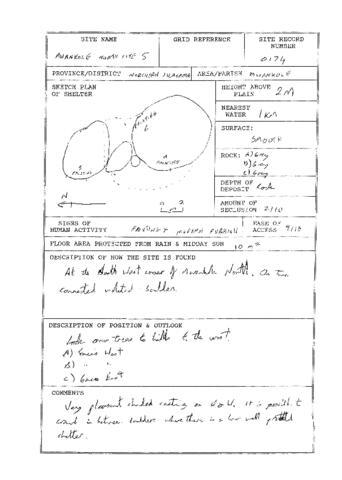 SITE NAME
GRID REFERENCE
SITE RECORD
NUMBER
SITE 5
0174
PROVINCE/DISTRICT
AREA/PARISH
SKETCH PLAN
OF SHELTER
HEIGHT ABOVE
PLAIN 2M
NEAREST
WATER 1 KM
SURFACE:
SMOOTH
ROCK: A) Grey
B) Grey
C) Grey
DEPTH OF
DEPOSIT
N
0 2
AMOUNT OF
SECLUSION 2/10
SIGNS OF
HUMAN ACTIVITY
MODERN
EASE OF
ACCESS 9/10
FLOOR AREA PROTECTED FROM RAIN & MIDDAY SUN 10 m²
DESCRIPTION OF HOW THE SITE IS FOUND
At the West corner of North. On two
connected boulders.
DESCRIPTION OF POSITION & OUTLOOK
Looks over trees to hills to the west.
A) Faces West
B) " "
C) Faces East
COMMENTS
Very pleasant shaded it is possible to
crawl in between boulders where there is a low well
shelter.